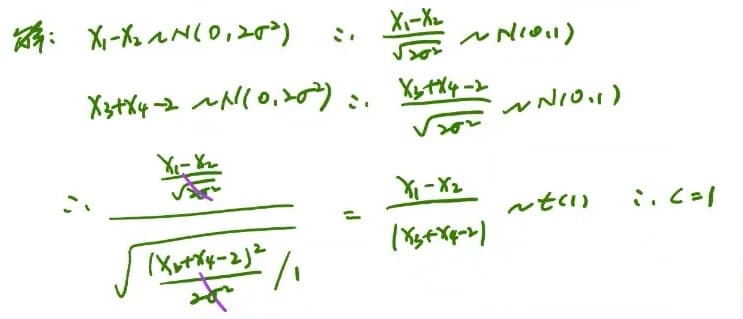 解: X₁-X₂ ~ N(0, 2σ²) ∴ \frac{X₁-X₂}{\sqrt{2σ²}} ~ N(0,1)
X₃+X₄-2 ~ N(0, 2σ²) ∴ \frac{X₃+X₄-2}{\sqrt{2σ²}} ~ N(0,1)
∴ \frac{\frac{X₁-X₂}{\sqrt{2σ²}}}{\sqrt{\frac{(X₃+X₄-2)²}{2σ²}/1}} = \frac{X₁-X₂}{|X₃+X₄-2|} ~ t(1) ∴ C=1